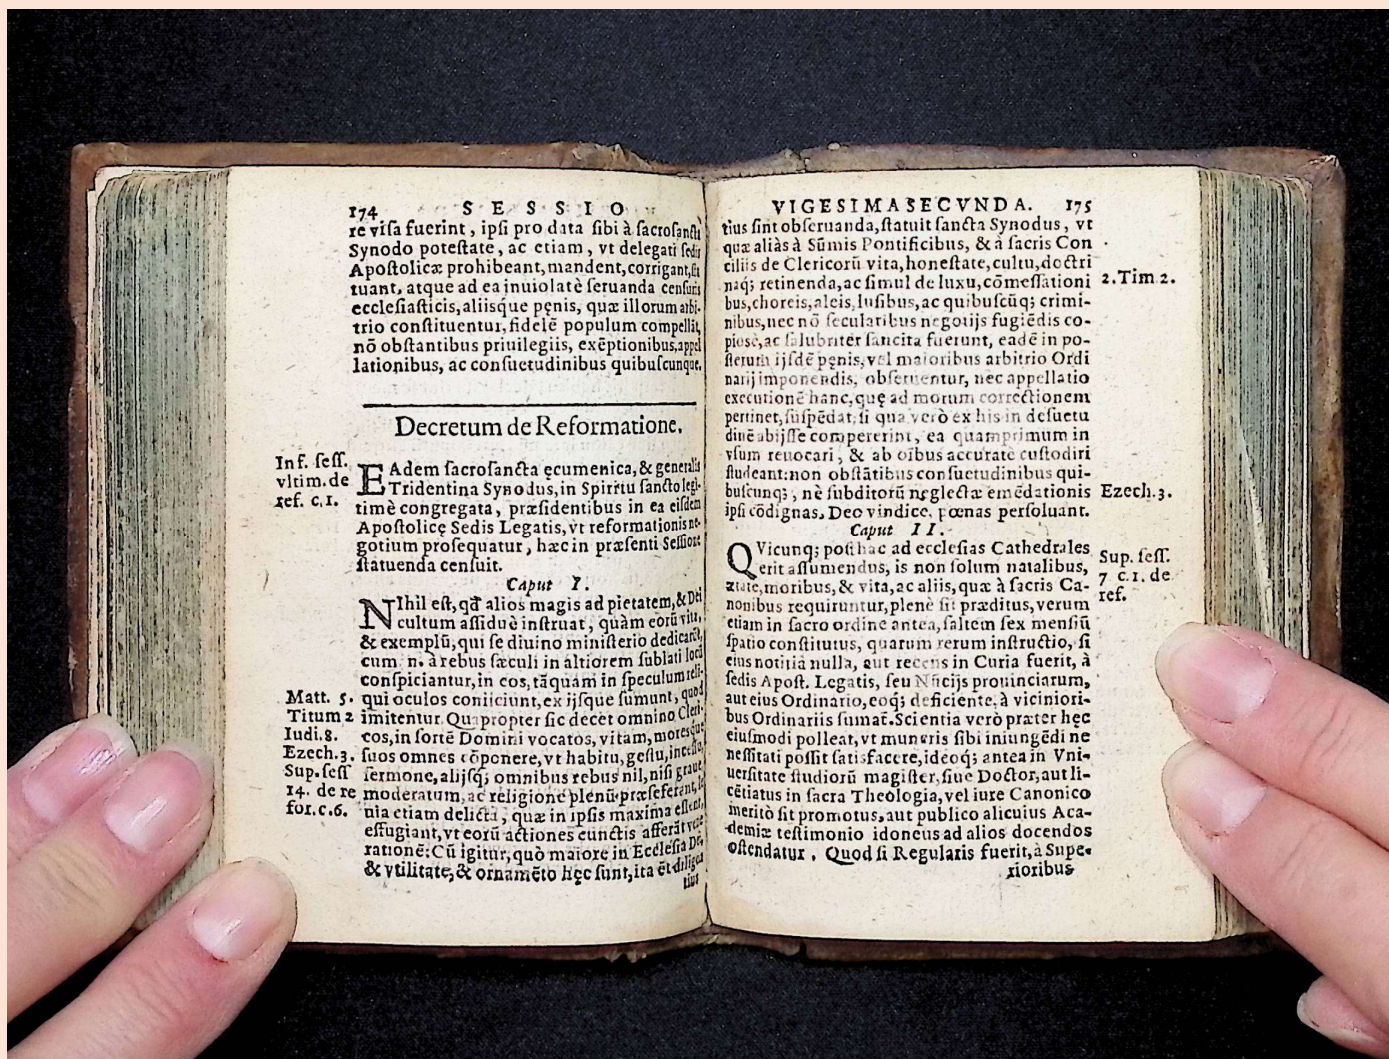 174 SESSIO
re visa fuerint, ipsi pro data sibi à sacrosancta
Synodo potestate, ac etiam, vt delegati sedis
Apostolicæ prohibeant, mandent, corrigant, sta
tuant, atque ad ea inuiolatè seruanda censuris
ecclesiasticis, aliisque pęnis, quæ illorum arbi-
trio constituentur, fidelē populum compellāt,
nō obstantibus priuilegiis, exēptionibus, appel
lationibus, ac consuetudinibus quibuscunque.
Decretum de Reformatione.
Inf. sess.
vltim. de
ref. c.1.
EAdem sacrosancta ęcumenica, & generalis
Tridentina Synodus, in Spiritu sancto legi-
timè congregata, præsidentibus in ea eisdem
Apostolicę Sedis Legatis, vt reformationis ne-
gotium prosequatur, hæc in præsenti Sessione
statuenda censuit.
Caput I.
NIhil est, qđ alios magis ad pietatem, & Dei
cultum assiduè instruat, quàm eorū vita,
& exemplū, qui se diuino ministerio dedicarūt,
cum n. à rebus sæculi in altiorem sublati locū
conspiciantur, in eos, tāquam in speculum reli-
qui oculos coniiciunt, ex ijsque sumunt, quod
imitentur. Quapropter sic decet omnino Cleri-
cos, in sortē Domini vocatos, vitam, moresque
suos omnes cōponere, vt habitu, gestu, incessu,
sermone, alijsq; omnibus rebus nil, nisi graue,
moderatum, ac religione plenū præseferant, le
nia etiam delicta, quæ in ipsis maxima essent,
effugiant, vt eorū actiones cunctis afferāt vene
rationē: Cū igitur, quò maiore in Ecclesia Dei,
& vtilitate, & ornamēto hęc sunt, ita ēt diligen
tius
Matt. 5.
Titum 2
Iudi. 8.
Ezech. 3.
Sup. sess
14. de re
for. c. 6.
VIGESIMASECVNDA. 175
tius sint obseruanda, statuit sancta Synodus, vt
quæ aliàs à Sūmis Pontificibus, & à sacris Con
ciliis de Clericorū vita, honestate, cultu, doctri
naq; retinenda, ac simul de luxu, cōmessationi
bus, choreis, aleis, lusibus, ac quibuscūq; crimi-
nibus, nec nō secularibus negotijs fugiēdis co-
piosè, ac salubriter sancita fuerunt, eadē in po-
sterum ijsdē pęnis, vel maioribus arbitrio Ordi
narij imponendis, obseruentur, nec appellatio
executionē hanc, quę ad morum correctionem
pertinet, suspēdat; si qua verò ex his in desuetu
dinē abijsse compererint, ea quamprimum in
vsum reuocari, & ab oībus accuratè custodiri
studeant: non obstātibus consuetudinibus qui-
buscunq;, nè subditorū neglectæ emēdationis
ipsi cōdignas, Deo vindice, pœnas persoluant.
2. Tim 2.
Ezech. 3.
Caput II.
QVicunq; posthac ad ecclesias Cathedrales
erit assumendus, is non solum natalibus,
ætate, moribus, & vita, ac aliis, quæ à sacris Ca-
nonibus requiruntur, plenè sit præditus, verum
etiam in sacro ordine antea, saltem sex mensiū
spatio constitutus, quarum rerum instructio, si
eius notitia nulla, aut recens in Curia fuerit, à
sedis Apost. Legatis, seu Nūcijs prouinciarum,
aut eius Ordinario, eoq; deficiente, à viciniori-
bus Ordinariis sumat̄. Scientia verò præter hęc
eiusmodi polleat, vt muneris sibi iniungēdi ne
nessitati possit satisfacere, ideoq; antea in Vni-
uersitate studiorū magister, siue Doctor, aut li-
cētiatus in sacra Theologia, vel iure Canonico
meritò sit promotus, aut publico alicuius Aca-
demiæ testimonio idoneus ad alios docendos
ostendatur. Quod si Regularis fuerit, à Supe-
rioribus
Sup. sess.
7 c.1. de
ref.